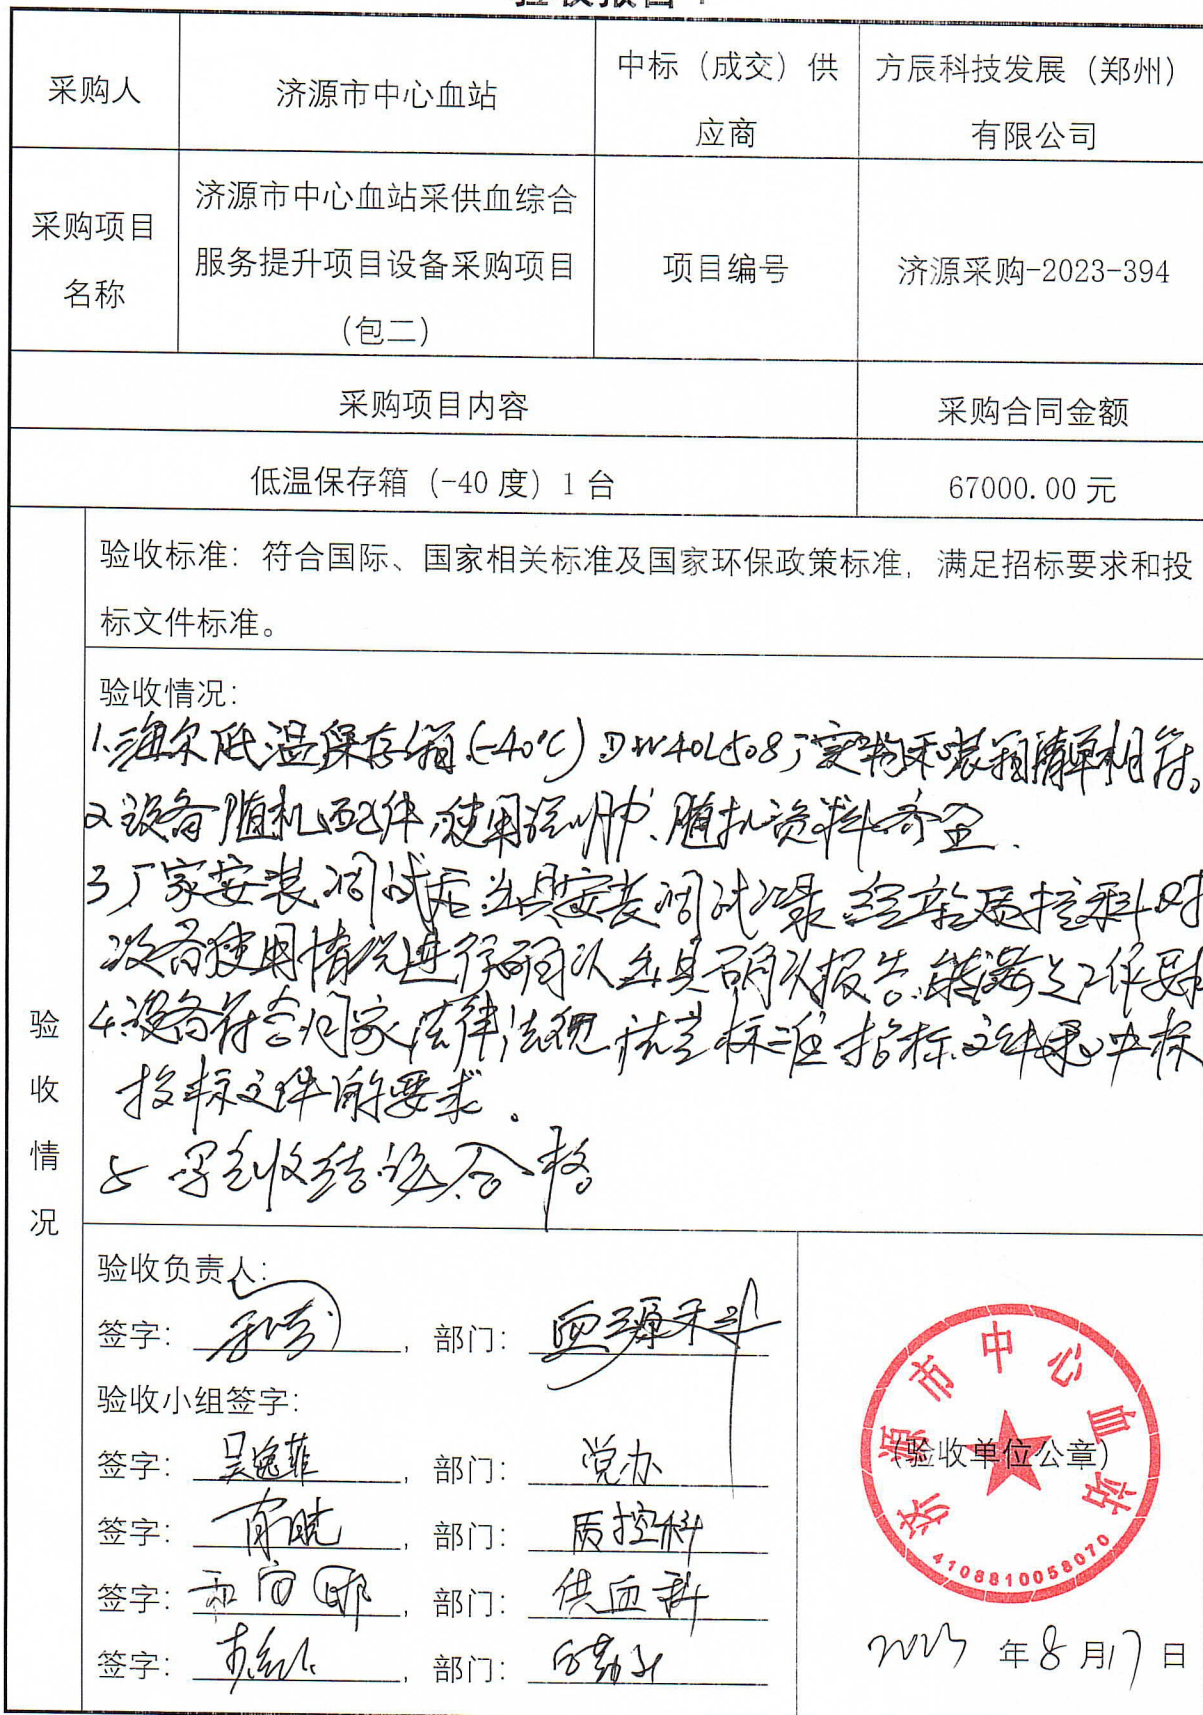 验收报告
采购人
济源市中心血站
中标（成交）供
应商
方辰科技发展（郑州）
有限公司
采购项目
名称
济源市中心血站采供血综合
服务提升项目设备采购项目
（包二）
项目编号
济源采购-2023-394
采购项目内容
采购合同金额
低温保存箱（-40 度）1 台
67000.00 元
验收情况
验收标准：符合国际、国家相关标准及国家环保政策标准，满足招标要求和投
标文件标准。
验收情况：
1.海尔低温保存箱(-40℃) DW40L508，实物和装箱清单相符。
2 设备随机配件，使用说明书、随机资料齐全.
3 厂家安装调试后出具安装调试记录 经站质控科对
设备使用情况进行确认出具确认报告.能满足工作要求
4.设备符合国家法律法规 标准 招标文件 中标
投标文件的要求。
5 验收结论合格
验收负责人：
签字： ，部门：血源科
验收小组签字：
签字：吴逸菲，部门：党办
签字： 晓，部门：质控科
签字：和 ，部门：供血科
签字： ，部门：
济源市中心血站
（验收单位公章）
4108810058070
2023 年 8 月 17 日